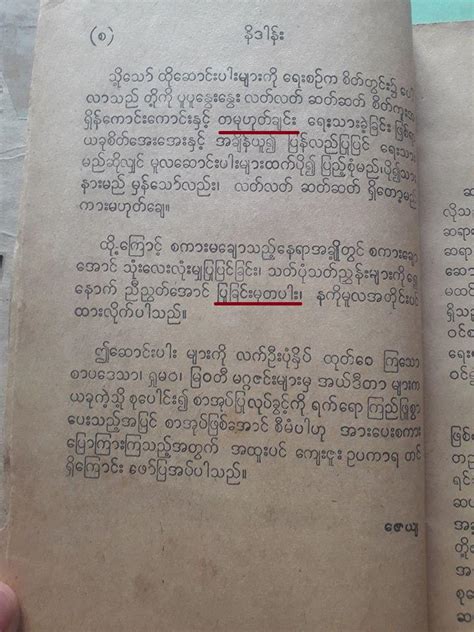 (စ) နိဒါန်း
သို့သော် ထိုဆောင်းပါးများကို ရေးစဉ်က စိတ်တွင်း၌ ပေါ်
လာသည် တို့ကို ပူပူနွေးနွေး လတ်လတ် ဆတ်ဆတ် စိတ်ကူး
ရှိန်ကောင်းကောင်းနှင့် တမုဟုတ်ချင်း ရေးသားခဲ့ခြင်း ဖြစ်၍
ယခုစိတ်အေးအေးနှင့် အချိန်ယူ၍ ပြန်လည်ပြုပြင် ရေးသား
မည်ဆိုလျှင် မူလဆောင်းပါးများထက်ပို၍ ပြည့်စုံမည်၊ ပို၍သာ
နားမည် မှန်သော်လည်း၊ လတ်လတ် ဆတ်ဆတ် ရှိတော့မည်
ကားမဟုတ်ချေ။
ထို့ကြောင့် စကားမချောသည့်နေရာအချို့တွင် စကားချော
အောင် သုံးလေးလုံးမျှပြုပြင်ခြင်း၊ သတ်ပုံသတ်ညွှန်းများကို ရှေ့
နောက် ညီညွတ်အောင် ပြုခြင်းမှတပါး၊ နဂိုမူလအတိုင်းပင်
ထားလိုက်ပါသည်။
ဤဆောင်းပါး များကို လက်ဦးပုံနှိပ် ထုတ်ဝေ ကြသော
စာပဒေသာ၊ ရှုမဝ၊ မြဝတီ မဂ္ဂဇင်းများမှ အယ်ဒီတာ များက
ယခုကဲ့သို့ စုပေါင်း၍ စာအုပ်ပြုလုပ်ခွင့်ကို ရက်ရော ကြည်ဖြူစွာ
ပေးသည့်အပြင် စာအုပ်ဖြစ်အောင် စီမံပါဟု အားပေးစကား
ပြောကြားကြသည့်အတွက် အထူးပင် ကျေးဇူး ဥပကာရ တင်
ရှိကြောင်း ဖော်ပြအပ်ပါသည်။
ဇေယျ